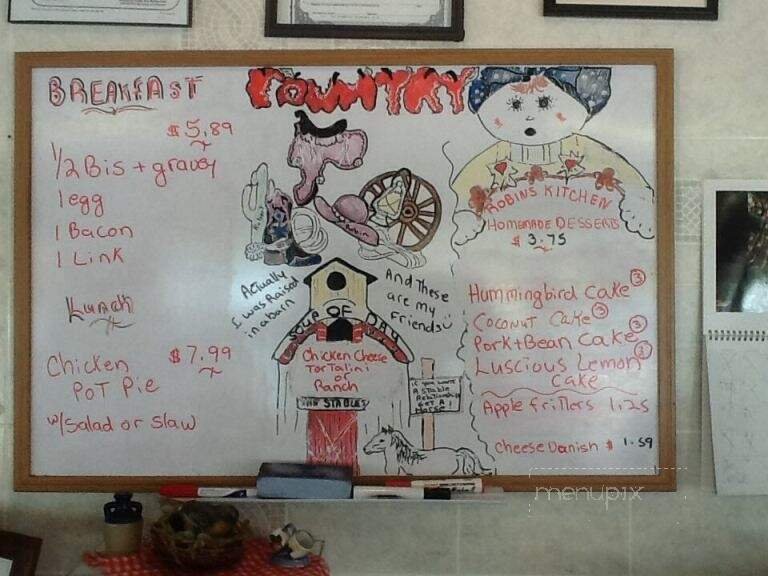 BREAKFAST
$5.89
1/2 Bis + gravey
1 egg
1 Bacon
1 Link
Lunch
Chicken $7.99
POT Pie
w/Salad or Slaw
COUNTRY
Actually
I was Raised
in a barn
And These
are my
Friends
SOUP OF DAY
Chicken Cheese
TorTalini
or
Ranch
STABLES
If you want
A Stable
Relationship
Get A
Horse
ROBINS KITCHEN
HOMEMADE DESSERTS
$3.75
Hummingbird Cake 3
Coconut Cake 3
Pork+Bean Cake 3
Luscious Lemon
Cake
Apple friTTers 1.25
Cheese Danish $1.59
menupix